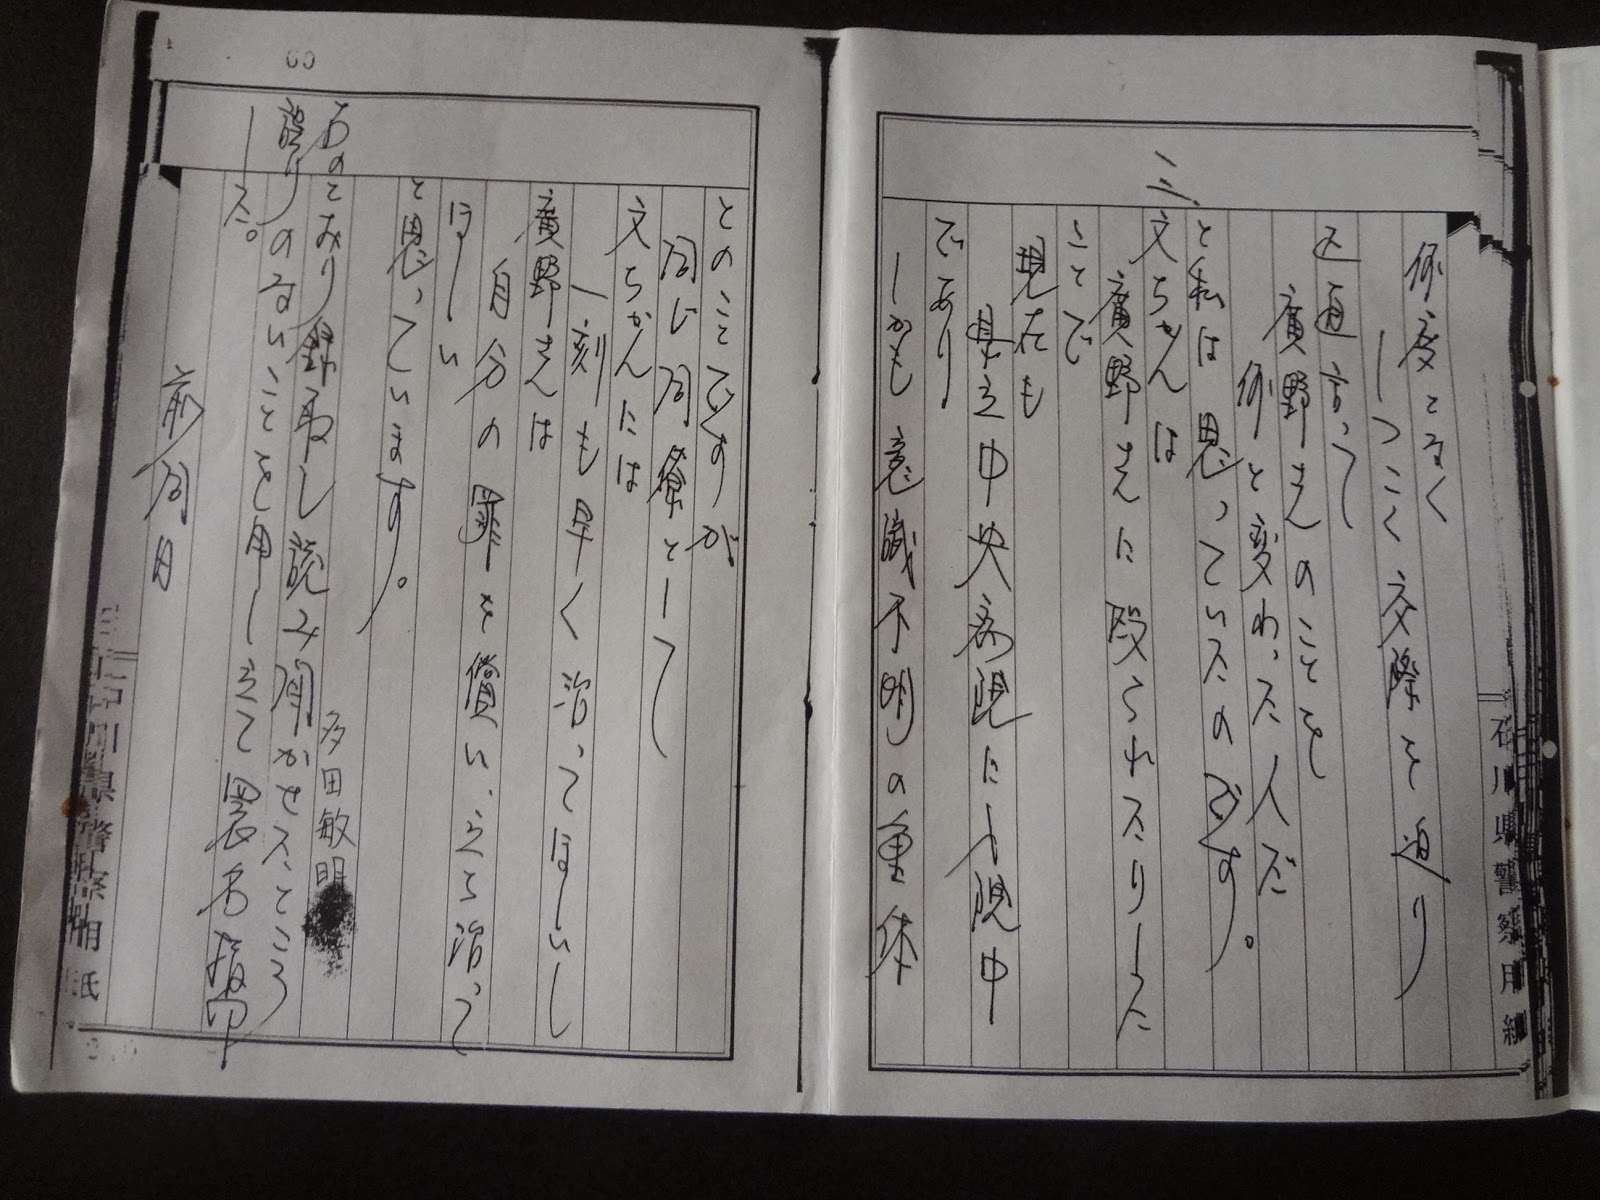 何度となく
しつこく交際を迫り
正直言って
廣野さんのことを
何と変わった人だ
と私は思っていたのです。
三、
文ちゃんは
廣野さんに殴られたりした
ことで
現在も
県立中央病院に入院中
であり
しかも意識不明の重体
とのことですが
同じ同僚として
文ちゃんには
一刻も早く治ってほしいし
廣野さんは
自分の罪を償い、立ち治って
ほしい
と思っています。
多田敏明
右のとおり録取し読み聞かせたところ
誤りのないことを申し立て署名指印
した。
前同日
石川県警察用紙
石川県警察用紙